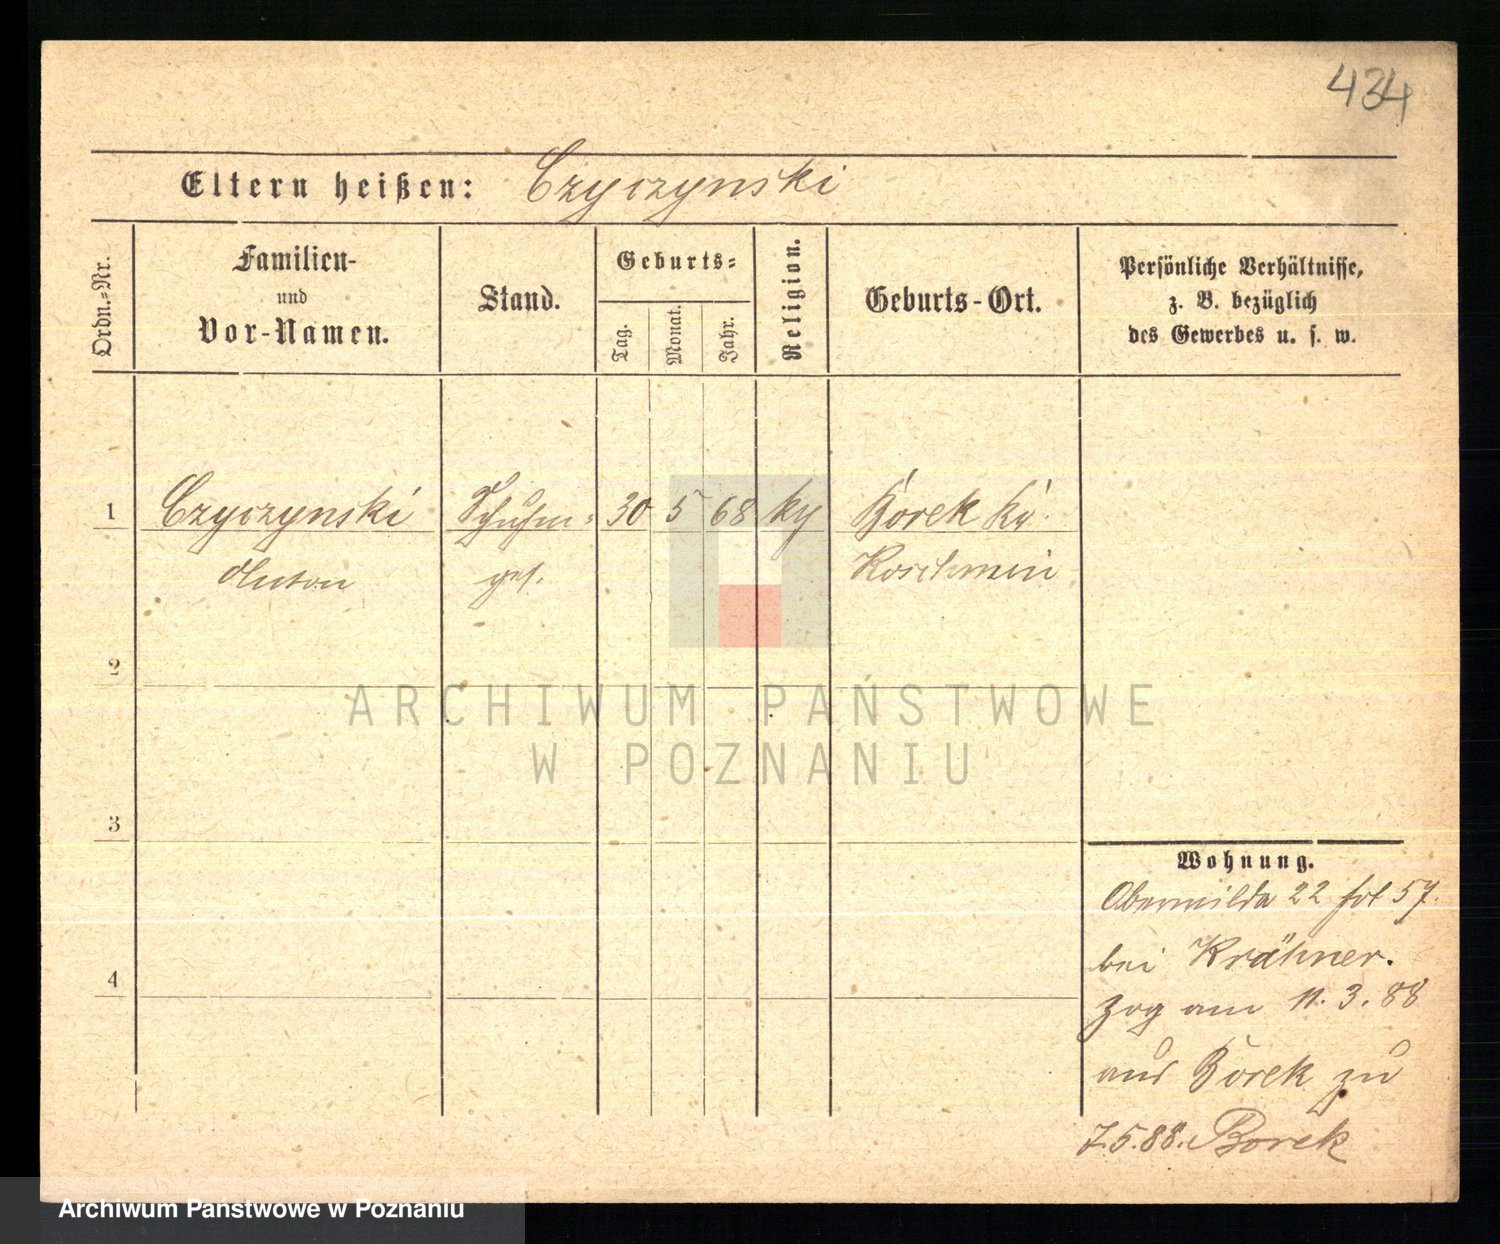 434
Eltern heißen: Czyczynski
Ordn.=Nr.
Familien-
und
Vor-Namen.
Stand.
Geburts=
Tag.
Monat.
Jahr.
Religion.
Geburts-Ort.
Persönliche Verhältnisse,
z. B. bezüglich
des Gewerbes u. s. w.
1 Czyczynski Schuhm= 30 5 68 ky Borek Kr.
Anton ges. Koschmin
2
3
4
Wohnung.
Oberwilda 22 57.
bei Krähner.
Zog am 11.3.88
aus Borek zu
7.5.88. Borek
ARCHIWUM PAŃSTWOWE
W POZNANIU
Archiwum Państwowe w Poznaniu